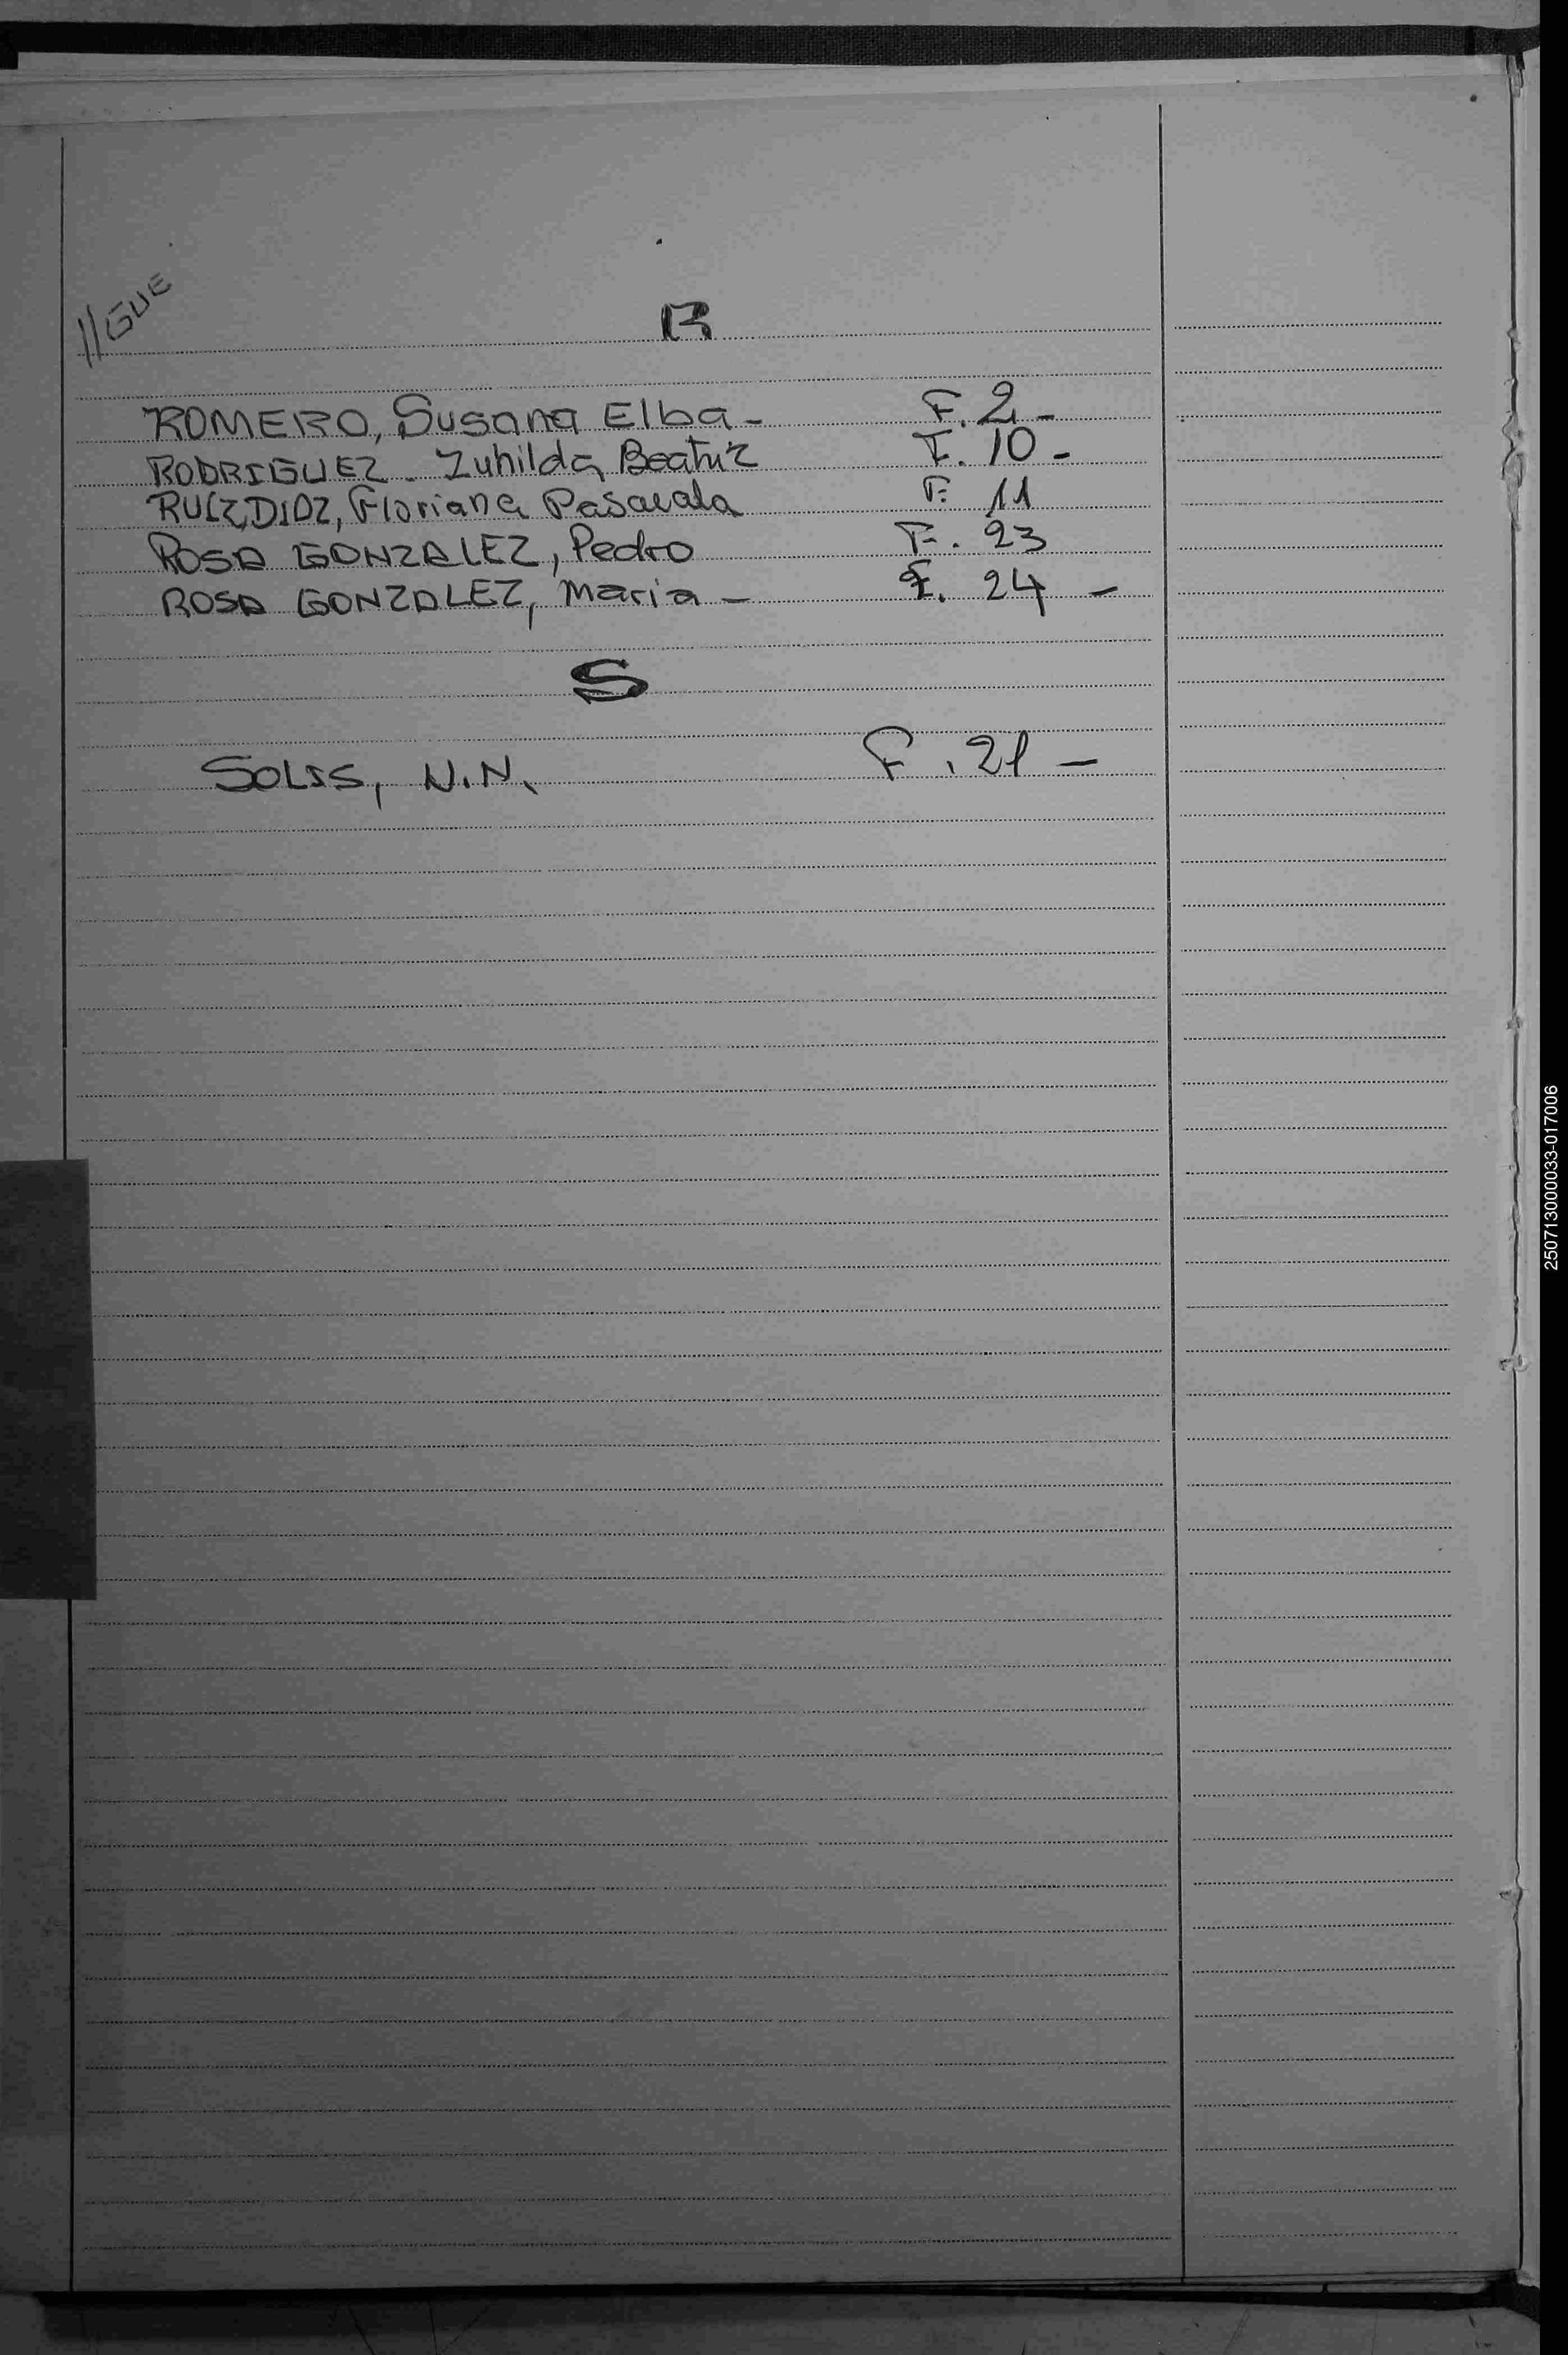 //GUE
R
ROMERO, Susana Elba - F. 2 -
RODRIGUEZ. Zuhilda Beatriz F. 10 -
RUIZ DIAZ, Floriana F. 11
ROSA GONZALEZ, Pedro F. 23
ROSA GONZALEZ, Maria - F. 24 -
S
SOLIS, N.N. F. 21 -
250713000033-017006